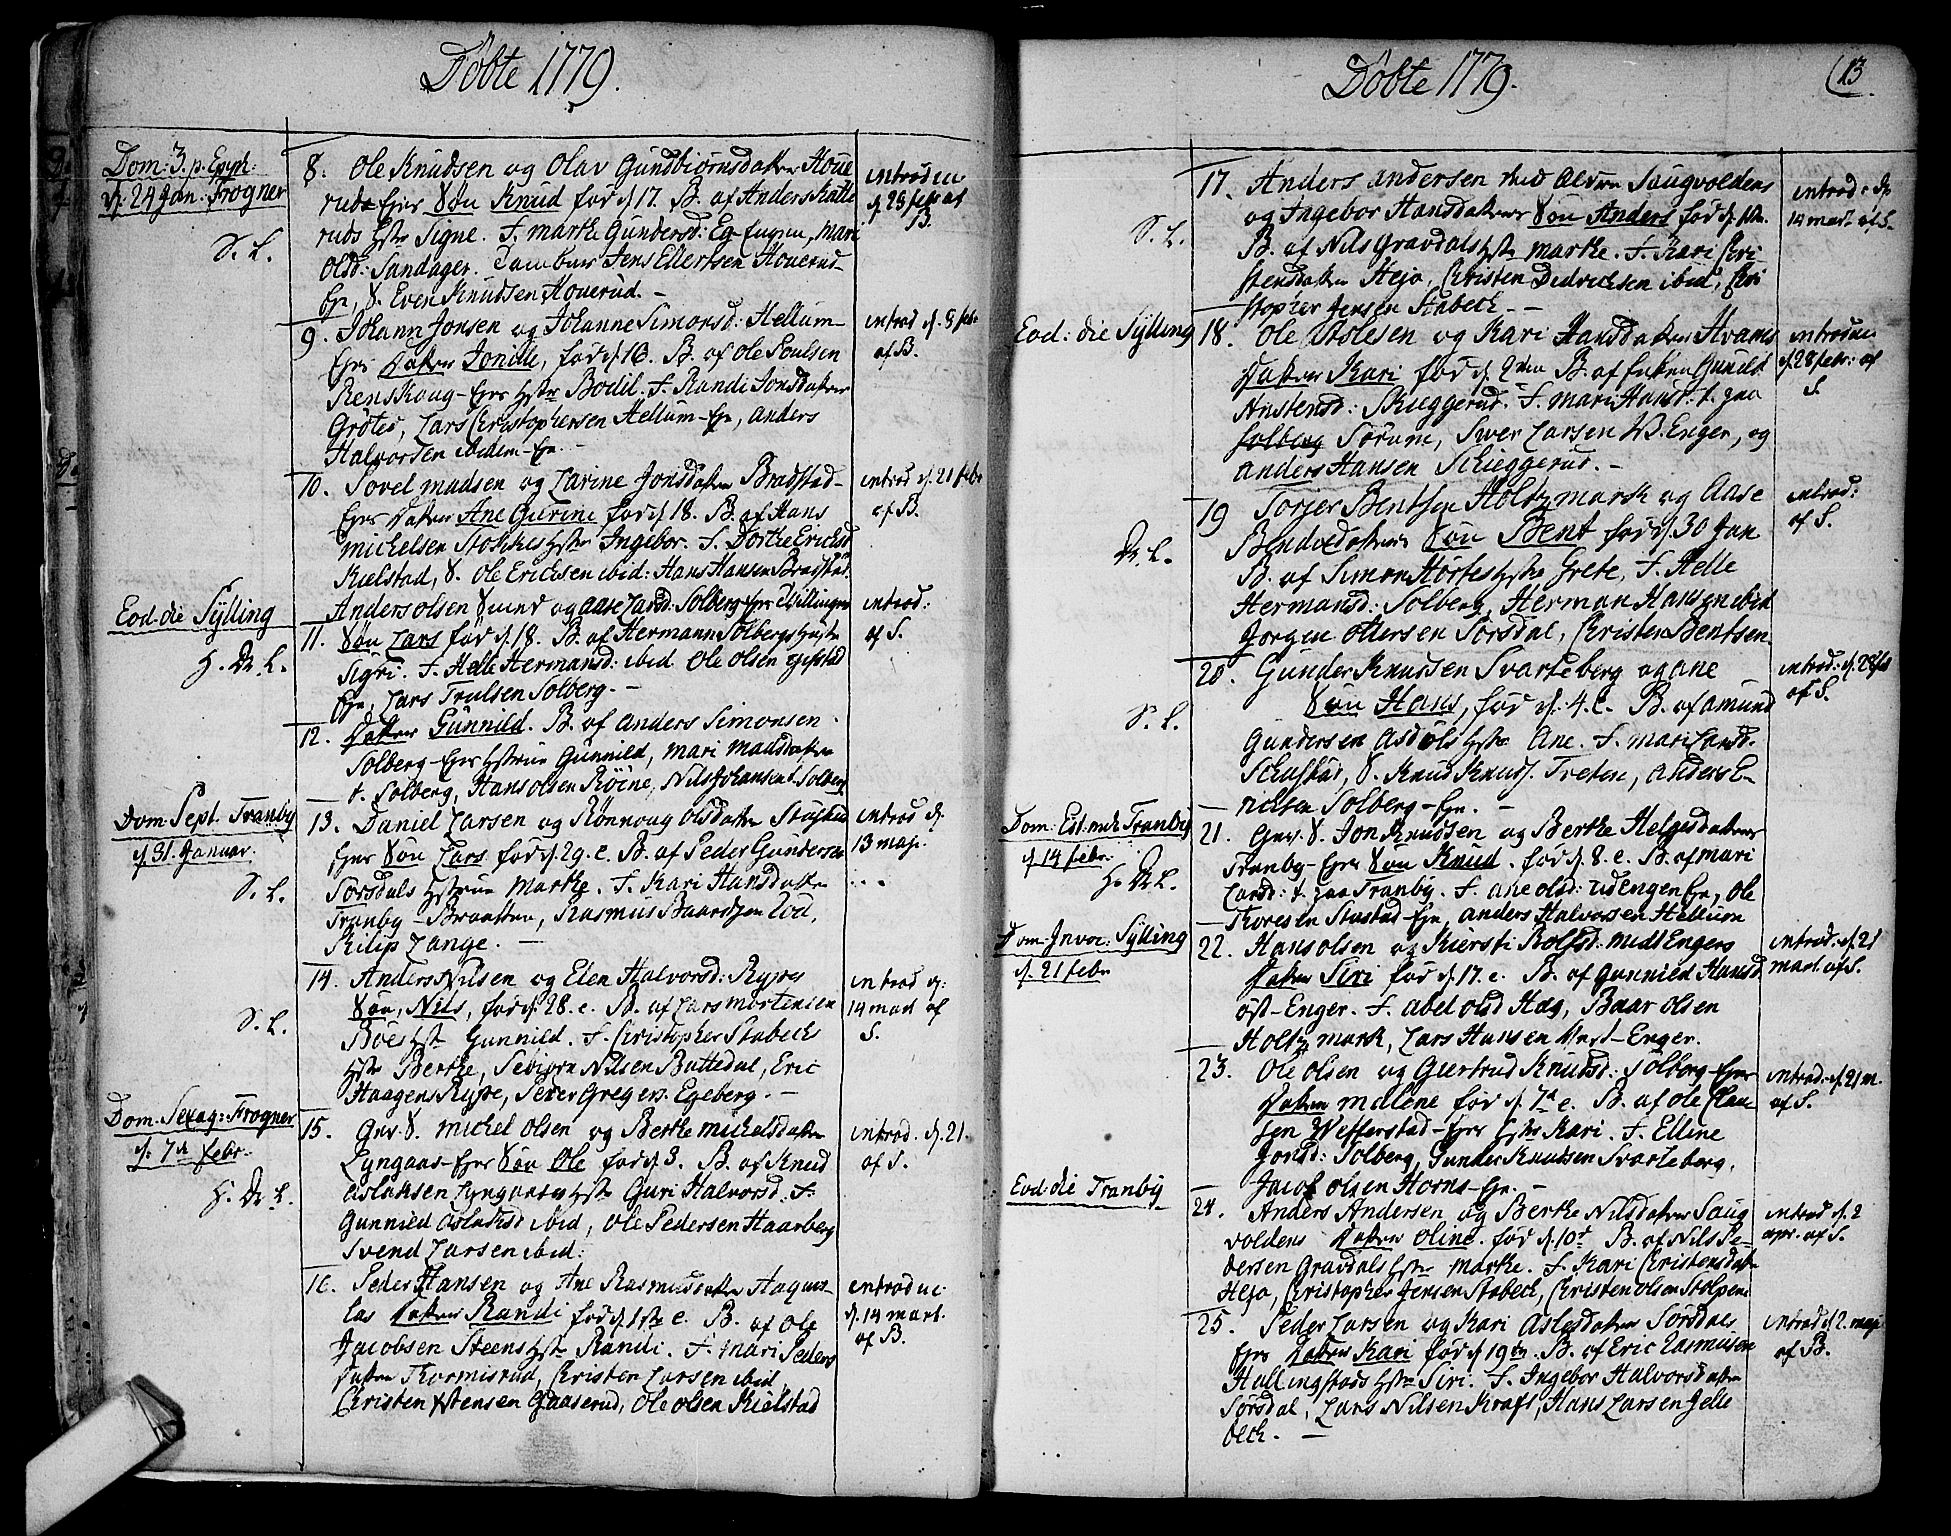 Døbte 1779.
Dom: 3. p. Epiph:
d. 24 Jan: Frogner
S. L.
8. Ole Knudsen og Olav Gundbiørnsdatter Houe
ruds Ejes Søn Knud fød d. 17. B. af Anders Katte
ruds hstr Signe. F. marthe Gundersd: Eg-Eugen, Mari
Olsd: Sandager. Tambur Jens Ellertsen Houerud-
Eje, S. Even Knudsen Houerud. -
introd
d. 28 febr af
B.
9. Johann Jonsen og Johanne Simonsd: Hellum-
Ejes Datter Jonille, fød d. 16. B. af Ole Poulsen
Renskoug-Ejes hstr Bodil. F. Randi Jonsdatter
Grøtes, Lars Christophersen Hellum-Eje, Anders
Halvorsen ibidem-Eje.
introd d. 5 febr
af B.
10. Sovel Madsen og Larine Jonsdatter Bradstad-
Ejes Datter Ane Gurine fød d. 18. B. af Hans
Michelsen Stokkes hstr Ingebor. F. Dorthe Ericksd
Kielstad, S. Ole Ericksen ibid: Hans Hansen Bragstad.
introd d. 21 febr
af B.
Eod. die Sylling
H. Dr. L.
Anders Olsen Svend og Aase Larsd: Solberg Ejes
11. Søn Lars fød d. 18. B. af Hermann Solbergs Hustr
Sigri. F. Helle Hermansd: ibid Ole Olsen Egifstad
Eje, Lars Trulsen Solberg. -
introd:
af S.
12. Datter Gunnild. B. af Anders Simonsen
Solberg-Ejes hstrue Gunnild, Mari Madsdatter
t. Solberg, Hans Olsen Røine, Nils Johansen t. Solberg
Dom. Sept. Tranby
d. 31. Januar.
S. L.
13. Daniel Larsen og Rønnoug Olsdatter Stustad
Ejes Søn Lars. fød d. 29. e. B. af Peder Gundersen
Sørsdals hstrue Marthe. F. Kari Hansdatter
Tranby-Braatten, Rasmus Baardsen Eod,
Kilip Lange. -
introd d.
13 maji.
S. L.
14. Anders Nilsen og Elen Halvorsd: Rypes
Søn, Nils, fød d. 28. e. B. af Lars Mortensen
Bøes hstr Gunnild. F. Christopher Stabecks
hstr Berthe, Torbiørn Nilsen Buttedal, Eric
Haagens Rype, Peder Gregers. Egeberg. -
introd d:
14 mart af
S.
Dom. Sexag: Frogner
d. 7de febr.
H. Dr. L.
15. Gev. S. Michel Olsen og Berthe Michelsdatter
Lyngaas-Ejes Søn Ole fød d. 3. B. af Knud
Aslaksen Lyngaases hstr Guri Halvorsd. F.
Gunnild Aslaksd ibid, Ole Pedersen Haarberg
Svend Larsen ibid:
introd. d. 21.
af S.
16. Peder Hansen og Ane Rasmusdatter
las Datter Randi fød d. 1ste e. B. af Ole
Jacobsen Steens hstr Randi. F. Mari Peders
datter Thormisrud, Christen Larsen ibid,
Christen Østensen Gaaserud, Ole Olsen Kielstad
introduc
d. 14 mart.
af B.
Døbte 1779.
13
S. L.
17. Anders Andersen med Alvor Saugvoldens
og Ingebor Hansdatters Søn Anders fød d.
B. af Nils Gravdals hstr Marthe. F. Kari Chri-
stensdatter Hejo, Christen Didricksen ibid, Chri
stopher Jensen Stabeck. -
introd: d.
14 mart. af S.
Eod: die Sylling
18. Ole Aslesen og Kari Hansdatter Hvams
Datter Kari fød d. 2den B. af Enken Gunild
Anstensd: Skuggerud. F. Mari Hansd. t. paa
Solberg Sørum, Siver Larsen W. Enger, og
Anders Hansen Schieggerud. -
introduc
d. 28 febr: af
S.
Dr. L.
19 Torger Bentsen Holtzmark og Aase
Bendixdatters Søn Bent fød d. 30 Jan
B. af Simon Hørtes hstr Grete, F. Helle
Hermansd: Solberg, Herman Hansen ibid
Jørgen Ottersen Sørsdal, Christen Bentsen.
introd:
af S.
S. L.
20. Gunder Knudsen Svarteberg og Ane
Søn Hans, fød d. 4. e. B. af Amund
Gundersen Asdøls hstr Ane. F. Mari Larsd.
Schustad, S. Knud Knuds. Tveten, Anders E-
richsen Solberg-Eje. -
introd: d. 28 feb
af S.
Dom. Est. mihi Tranby
d. 14 febr.
H. Dr. L.
21. Gev. S. Jon Knudsen og Berthe Helgesdatter
Tranby-Ejes Søn Knud. fød d. 8. e. B. af Mari
Larsd: t. paa Tranby. F. Ane Olsd: Udengen Eje, Ole
Thoresen Stustad-Eje, Anders Halvorsen Hellum
Dom. Invoc: Sylling
d. 21 febr
22. Hans Olsen og Kiersti Rolfsd: Midt Engers
Datter Siri fød d. 17. e. B. af Gunnild Hansd
Øst-Enger. F. Abel Olsd Hag, Baar Olsen
Holtzmark, Lars Hansen Vest-Enger.
introd. d. 21
mart. af S.
23. Ole Olsen og Giertrud Knudsd: Solberg-Ejes
Datter Malene fød d. 7de e. B. af Ole Clau
sen Wefferstad-Ejes hstr Kari. F. Elline
Jonsd: Solberg, Gunder Knudsen Svarteberg,
Jacob Olsen Horns-Eje. -
introd. d. 21 m.
af S.
Eod. die Tranby
24. Anders Andersen og Berthe Nilsdatter Saug
voldens Datter Oline. fød d. 10d B. af Nils Pe-
dersen Gravdals hstr Marthe. F. Kari Christensdatr
Hejo, Christopher Jensen Stabeck, Christen Olsen Stolpen
introd d. 2
apr. af S.
25. Peder Larsen og Kari Aslesdatter Sørsdals
Ejes Datter Kari fød d. 19de. B. af Eric Rasmusen
Hallingstads hstr Siri. F. Ingebor Halvorsdatter
Sørsdal, Lars Nilsen Kraft, Hans Larsen Jelle
beck. -
introd d. 2. maji
af B.